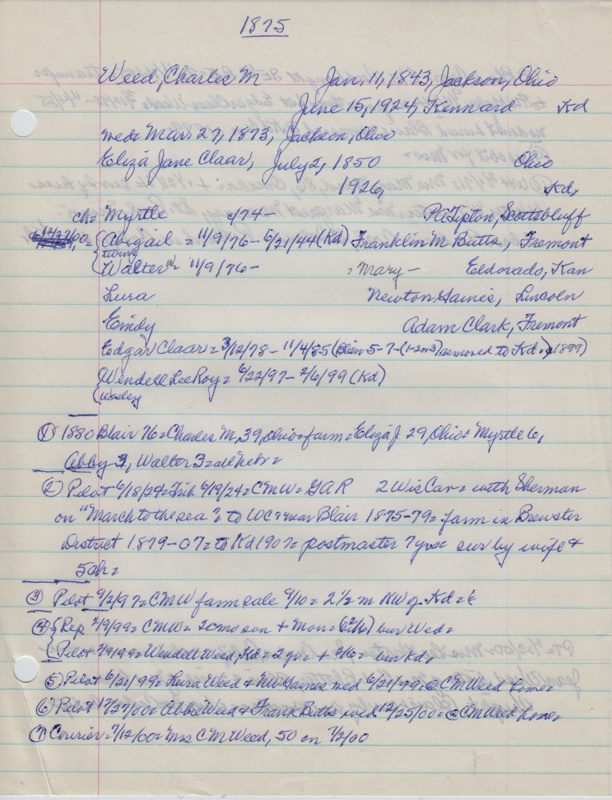 1875
Weed, Charles M Jan. 11, 1843, Jackson, Ohio
June 15, 1924, Kennard Kd
med= Mar. 27, 1873, Jackson, Ohio
Eliza Jane Claar, July 2, 1850 Ohio
1926, Kd,
ch= Myrtle 2/74- PA Tipton, Scottsbluff
Abigail = 11/9/76- 5/21/44 (Kd) Franklin M Butts, Fremont
twins
Walter 11/9/76- = Mary- Eldorado, Kan
Lura Newton Gaines, Lincoln
Emily Adam Clark, Fremont
Edgar Claar= 3/12/78- 11/4/85 (Blair 5-7- removed to Kd. 1899)
Wendell LeeRoy= 4/22/97- 2/6/99 (Kd)
Wesley
① 1880 Blair 76= Charles M, 39, Ohio= farm= Eliza J 29, Ohio= Myrtle 6,
Abby 3, Walter 3= all Nebr=
② Pilot 6/18/24= Trib 6/19/24= CMW= GAR 2 Wis Cav= with Sherman
on "March to the sea"= to WC= near Blair 1875-79= farm in Brewster
District 1879-07= to Kd 1907= postmaster 7 yrs= sur by wife &
5 ch=
③ Pilot 9/2/97= CMW farm sale 9/10= 2½ m NW of Kd=
④ Rep 2/9/99= CMW= 20 mo son + Mon= (2/6) bur Wed=
Pilot 2/9/99= Wendell Weed, Kd= 2 yr= + 2/6= bur Kd=
⑤ Pilot 6/21/99= Lura Weed & NW Gaines med 6/21/99= @ CM Weed home=
⑥ Pilot 12/27/00= Abbie Weed & Frank Butts med 12/25/00= @ CM Weed home=
⑦ Courier= 7/12/00= Mrs CM Weed, 50 on 7/2/00